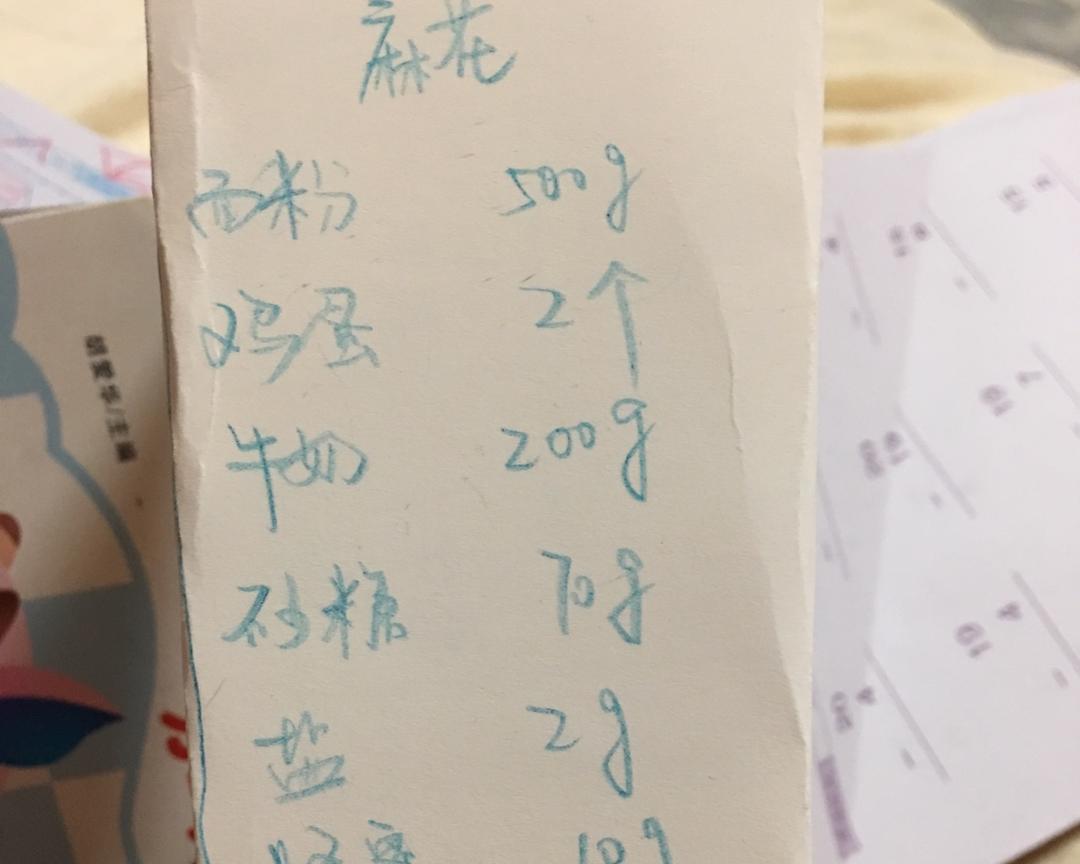 麻花
面粉 500g
鸡蛋 2个
牛奶 200g
砂糖 70g
盐 2g
10g
胡爱华/主编